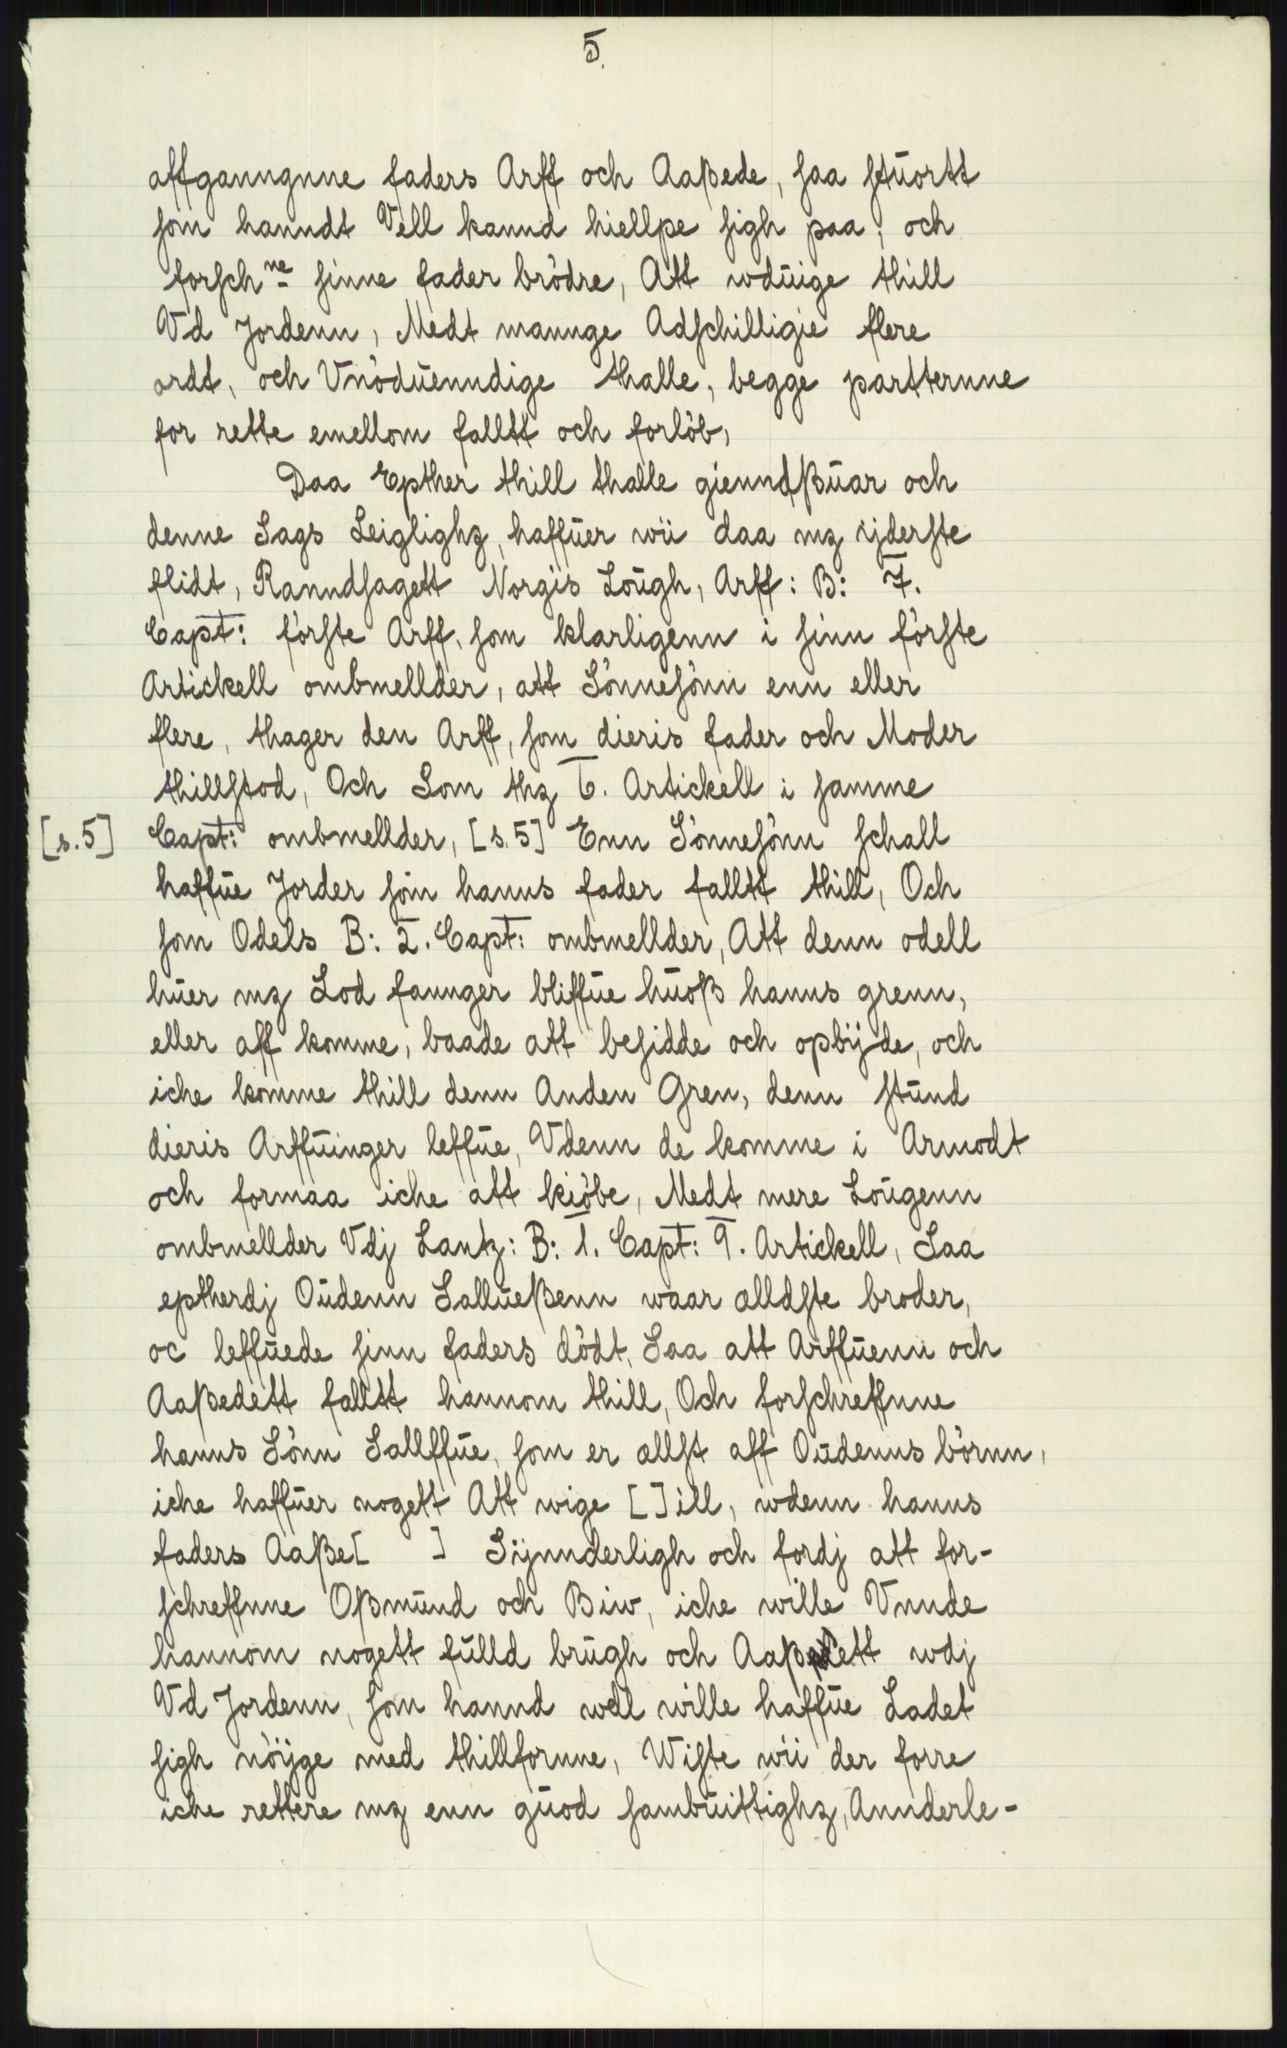 5.
affganngnne faders Arff och Aaßede, saa stūortt
som hanndt Vell kannd hiellpe sigh paa, och
forsch ne sinne fader brödre, Att wdūige thill
Vd Jordenn, Medt mannge Adschilligie flere
ordt, och Vnödūenndige thalle, begge partternne
for rette emellom falltt och forlöb,
Daa Epther thill thalle gienndßūar och
denne Sags Leiglighz, haffūer wii daa mz ijderste
flidt, Ranndsagett Norgis Loūgh, Arff: B: 7.
Capt: förste Arff, som klarligenn i sinn förste
Artickell ombmellder, att Sönnesönn enn eller
flere, thager den Arff, som dieris fader och Moder
thillstod, Och Som thz 6. Artickell i samme
[s.5] Capt: ombmellder, [s.5] Enn Sönnesönn schall
haffūe Jorder som hanns fader falltt thill, Och
som Odels B: 2. Capt: ombmellder, Att denn odell
hūer mz Lod fannger bliffūe hūoß hanns grenn,
eller aff komme, baade att besidde och opbijde, och
iche komme thill denn Anden Gren, denn stūnd
dieris Arffūinger leffūe, Vdenn de komme i Armodt
och formaa iche att kiöbe, Medt mere Loūgenn
ombmellder Vdj Lantz: B: 1. Capt: 9. Artickell, Saa
eptherdj Oūdenn Sallūeßenn waar alldste broder,
oc leffūede sinn faders dödt, Saa att Arffūenn och
Aaßedett falltt hannom thill, Och forschreffnne
hanns Sönn Sallffūe, som er allst aff Oūdenns börnn,
iche haffūer nogett Att wige [ ]ill, wdenn hanns
faders Aaße[ ] Sijnnderligh och fordj att for-
schreffnne Oßmūnd och Biw, iche wille Vnnde
hannom nogett fūlld brūgh och Aaßedett wdj
Vd Jordenn, som hannd well wille haffūe Ladet
sigh nöijge med thillfornne, Wiste wii der forre
iche rettere mz enn gūod sambūittighz, Annderle-